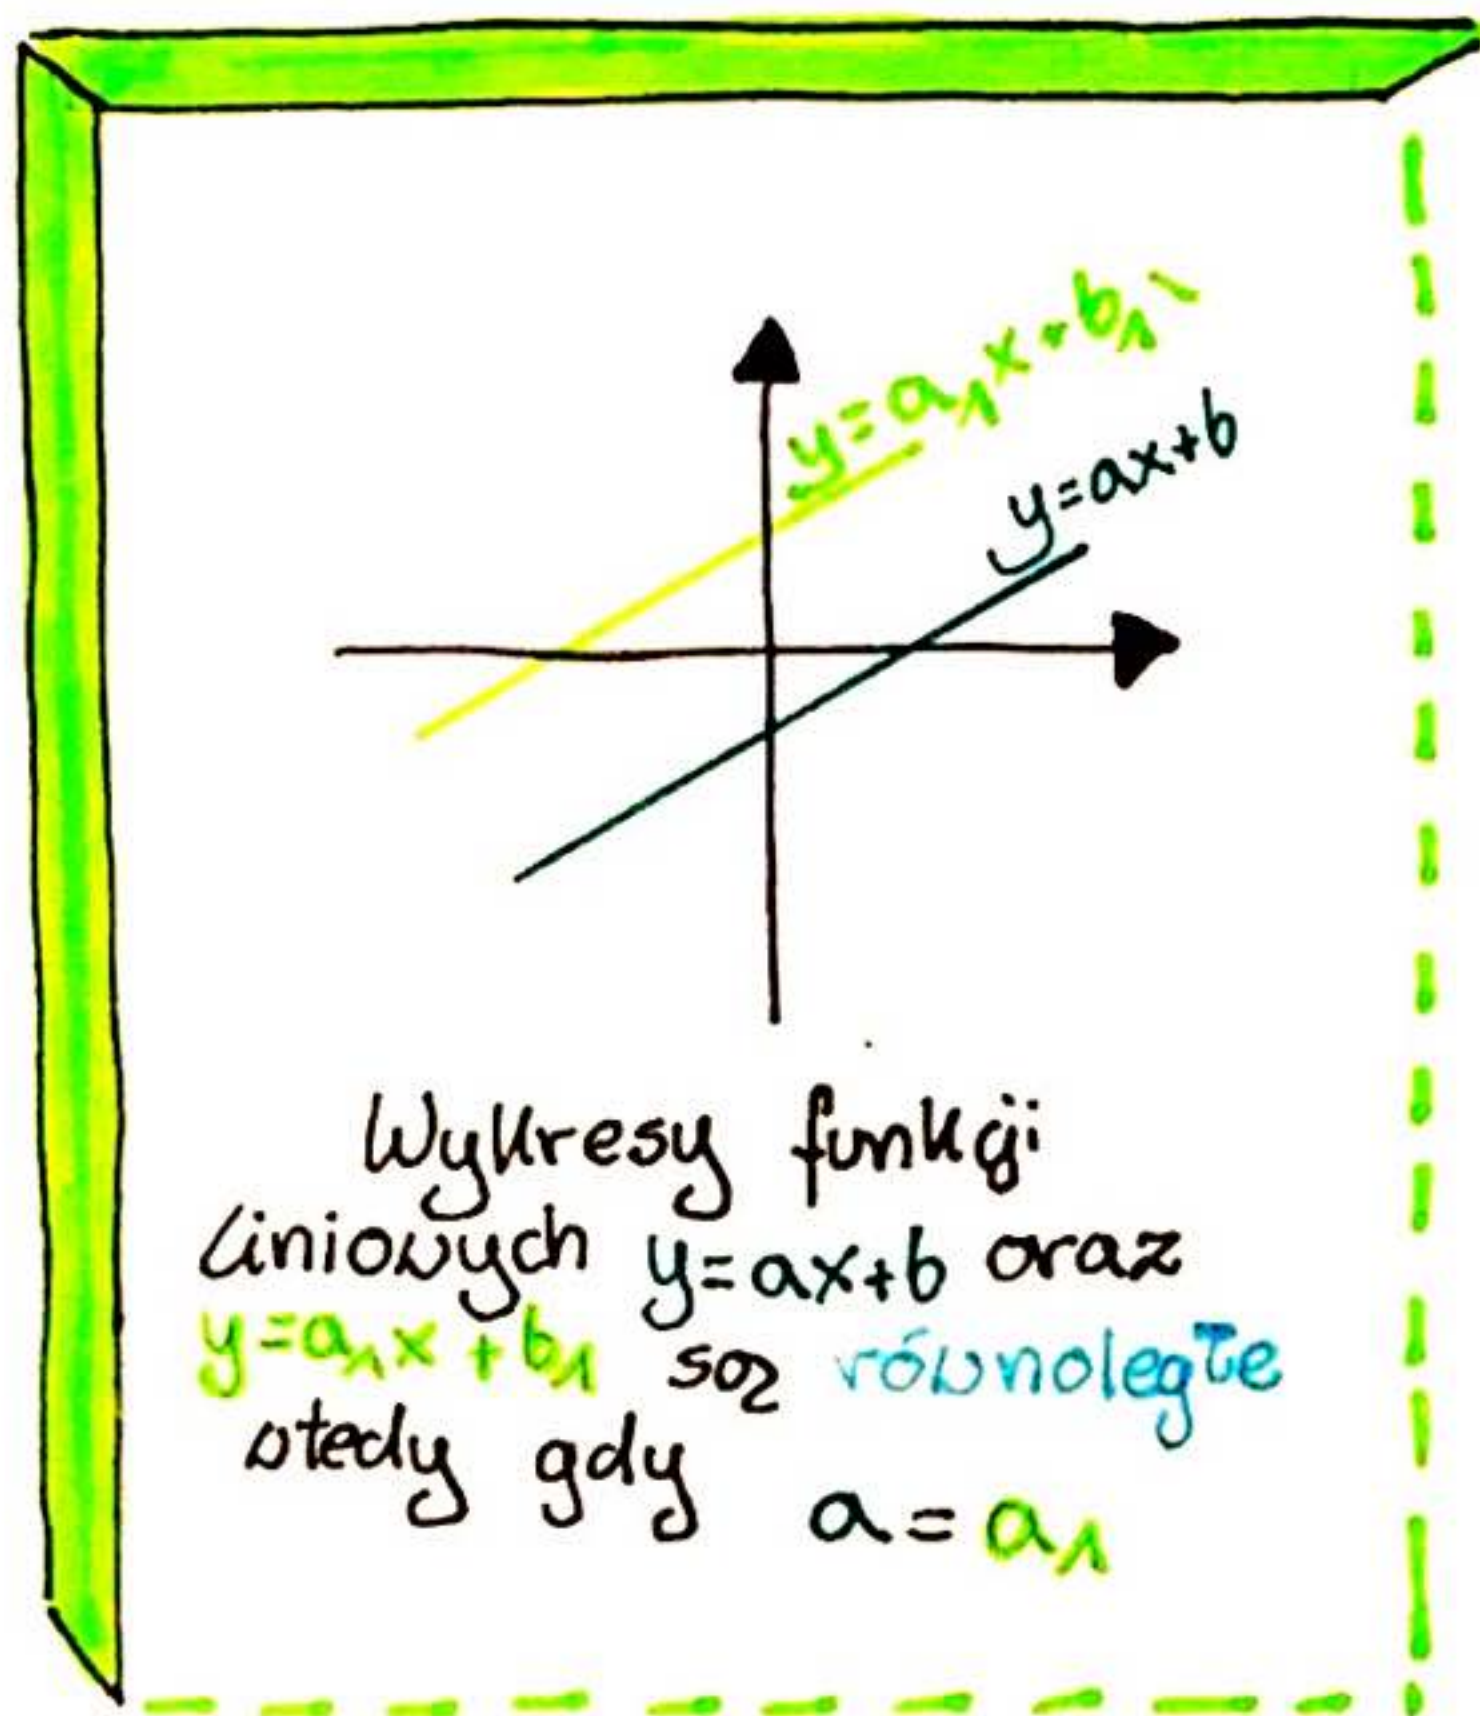 y=a₁x+b₁
y=ax+b
Wykresy funkcji
liniowych y=ax+b oraz
y=a₁x+b₁ są równoległe
wtedy gdy a=a₁